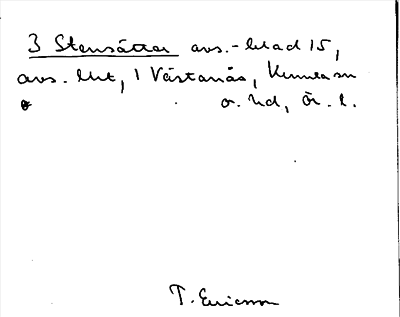 3 Stensåttar avs.-bebad 15,
avs. lht, 1 Västanås, Kumla sn
o. hd, Ör. l.
T. Ericsson